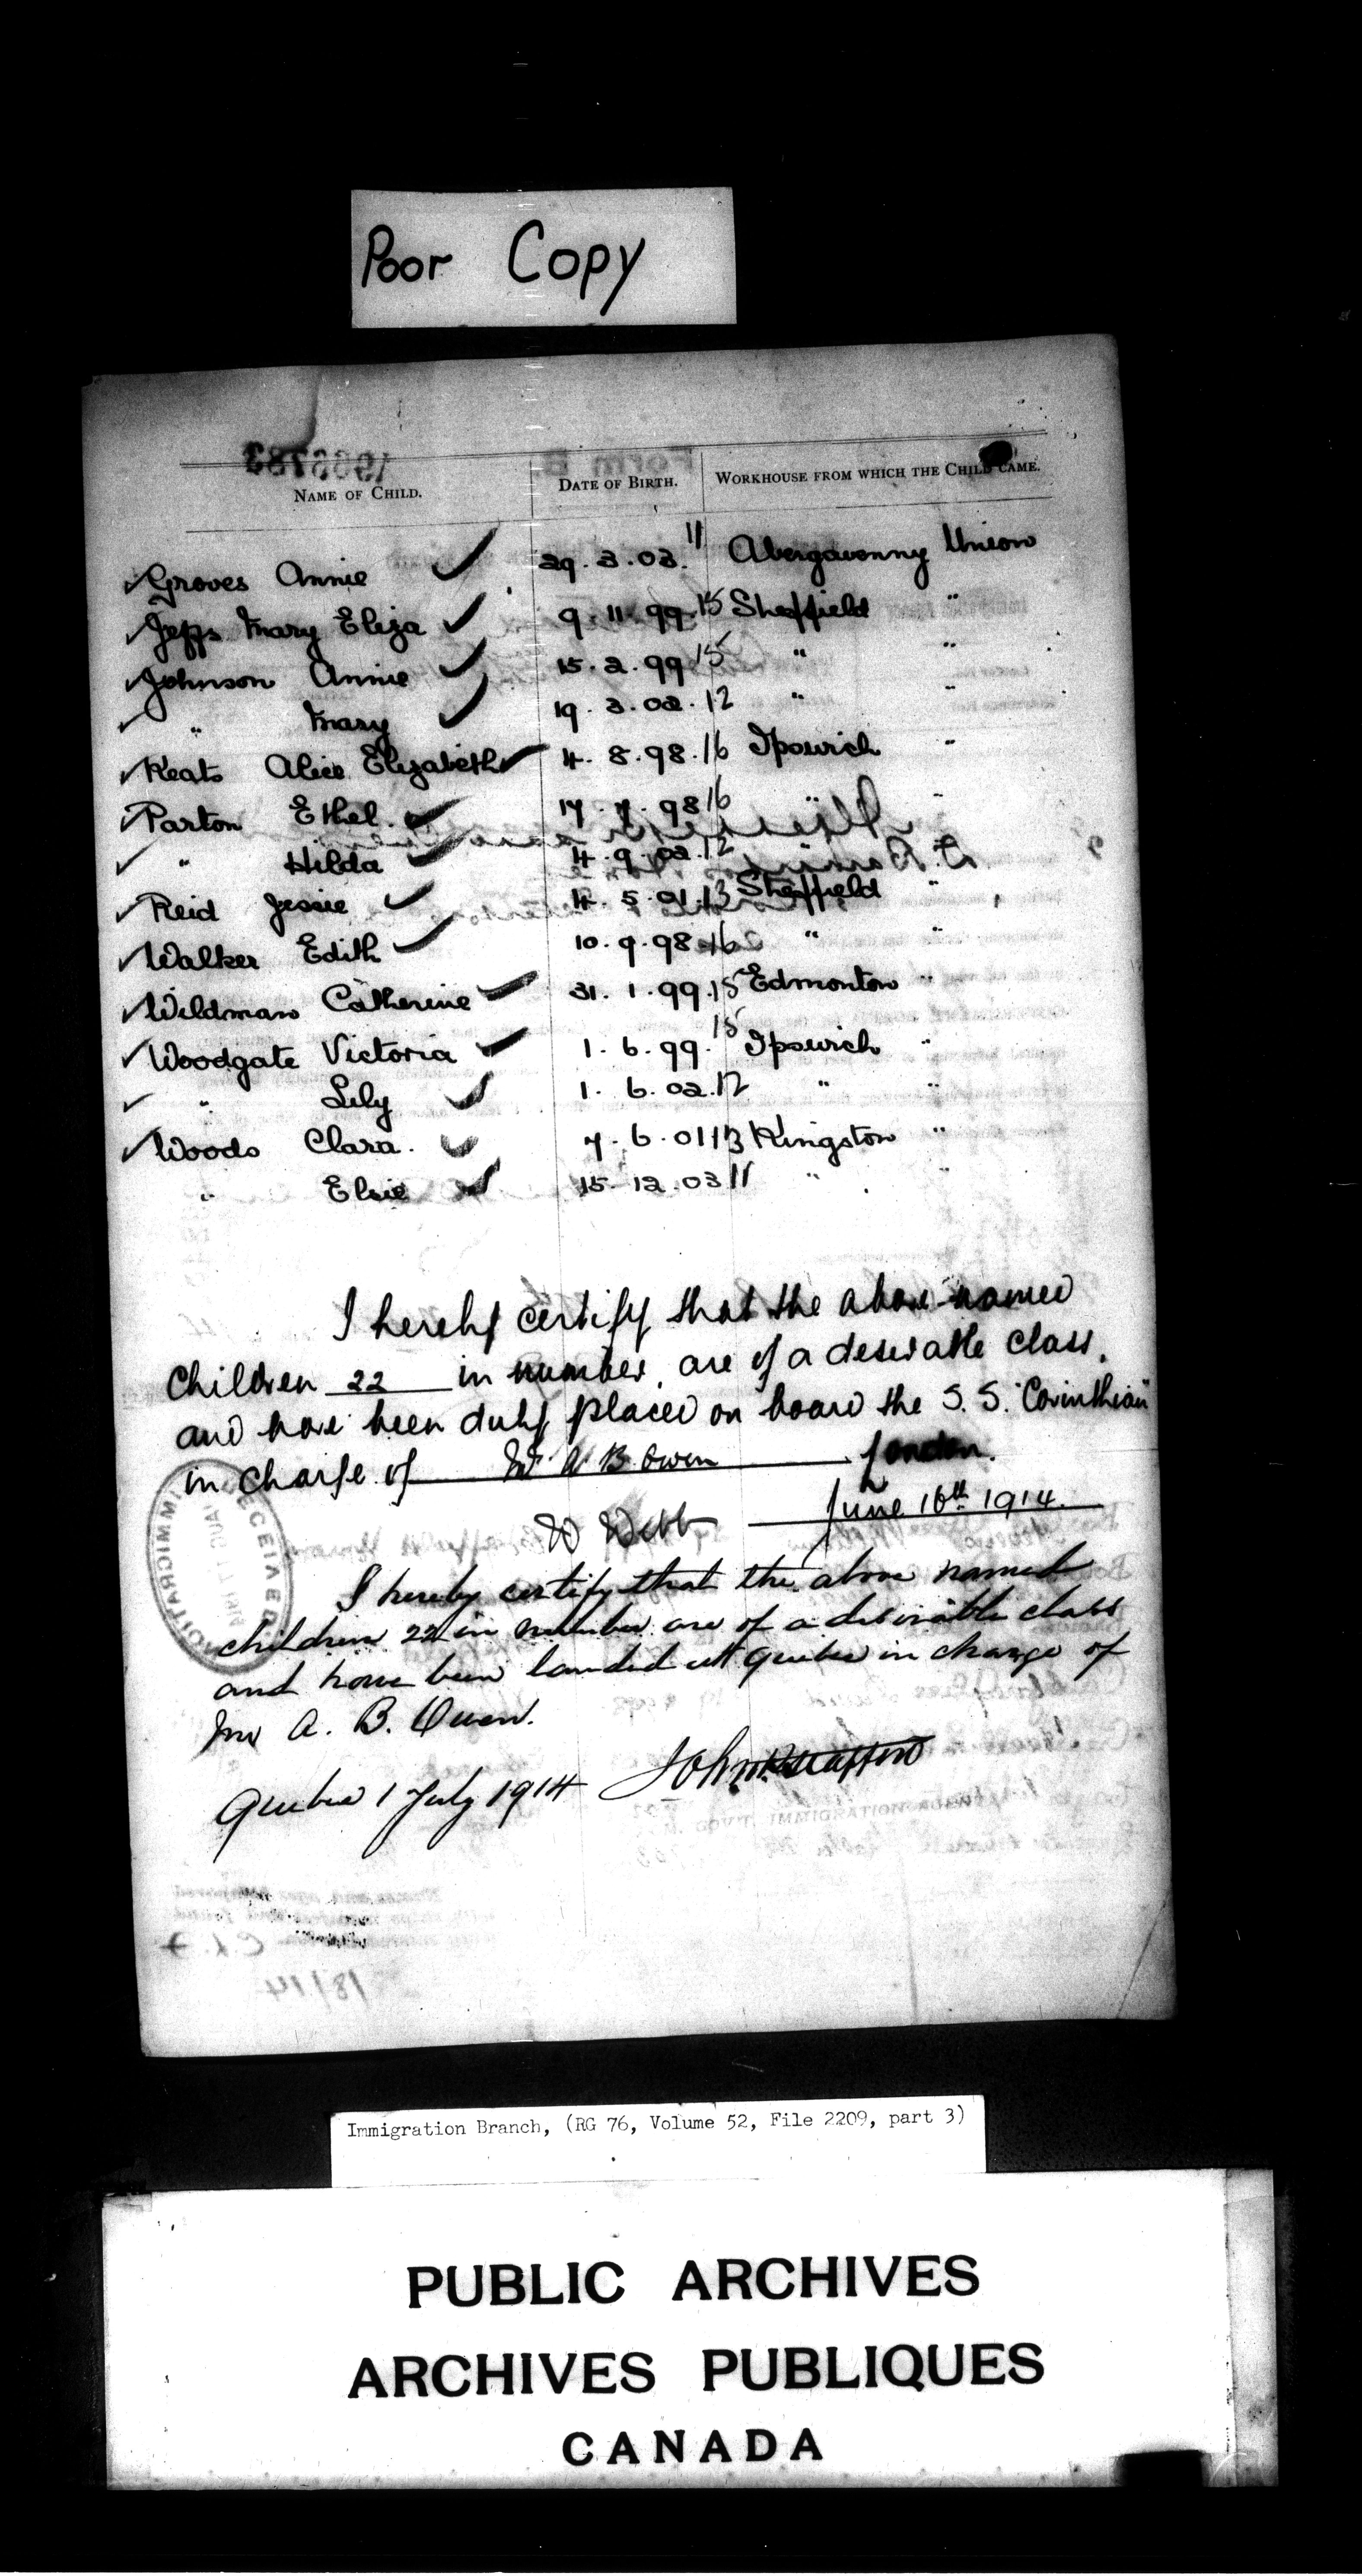 Poor Copy
NAME OF CHILD. DATE OF BIRTH. WORKHOUSE FROM WHICH THE CHILD CAME.
✓ Groves Annie ✓ 29.3.03. 11 Abergavenny Union
✓ Jepps Mary Eliza ✓ 9.11.99. 15 Sheffield "
✓ Johnson Annie ✓ 15.2.99 15 " "
✓ " Mary ✓ 19.3.02. 12 " "
✓ Keats Alice Elizabeth ✓ 4.8.98. 16 Ipswich "
✓ Parton Ethel. ✓ 17.7.98 16 " "
✓ " Hilda ✓ 4.9.02. 12
✓ Reid Jessie ✓ 4.5.01. 13 Sheffield "
✓ Walker Edith ✓ 10.9.98 16 " "
✓ Wildman Catherine ✓ 31.1.99. 15 Edmonton "
✓ Woodgate Victoria ✓ 1.6.99. 15 Ipswich "
✓ " Lily ✓ 1.6.02. 12 " "
✓ Woods Clara. ✓ 7.6.01 13 Kingston "
" Elsie ✓ 15.12.03 11 " "
I hereby certify that the above named
children 22 in number, are of a desirable class,
and have been duly placed on board the S.S. "Corinthian"
in charge of Mr A B Owen London.
June 16th 1914.
W Webb
I hereby certify that the above named
children 22 in number are of a desirable class
and have been landed at Quebec in charge of
Mr A. B. Owen.
Quebec 1 July 1914
Immigration Branch, (RG 76, Volume 52, File 2209, part 3)
PUBLIC ARCHIVES
ARCHIVES PUBLIQUES
CANADA